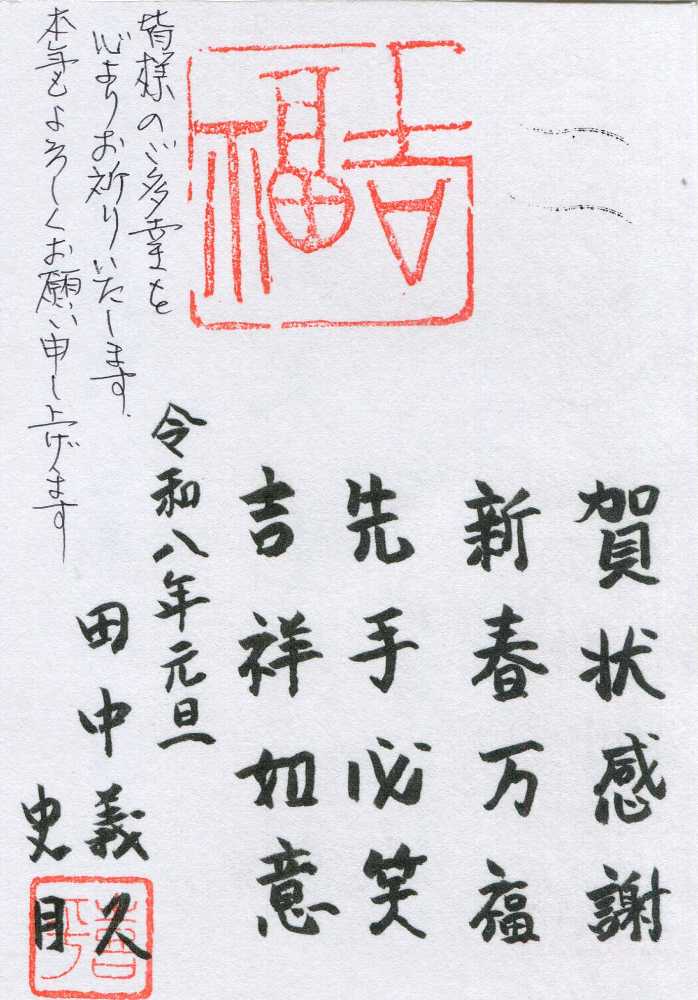 賀状感謝
新春万福
先手必笑
吉祥如意
令和八年元旦
田中義久
史
皆様のご多幸を
心よりお祈りいたします.
本年もよろしくお願い申し上げます
吉
福